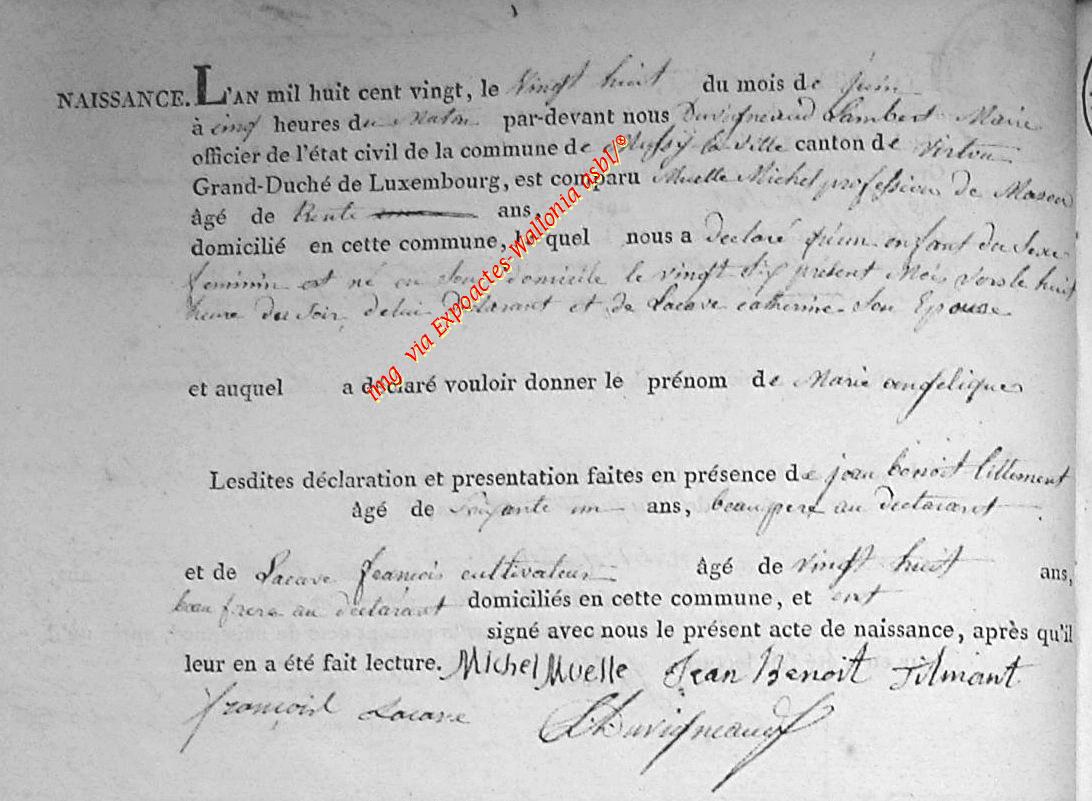 NAISSANCE. L'AN mil huit cent vingt, le vingt huit du mois de juin
à cinq heures du Matin par-devant nous Duvigneaud Lambert Marie
officier de l'état civil de la commune de Mussy la ville canton de Virton
Grand-Duché de Luxembourg, est comparu Muelle Michel profession de Mason
âgé de trente ans,
domicilié en cette commune, le quel nous a declaré qu'un enfant du Sexe
feminin est né en Son domicile le vingt six présent Mois vers le huit
heure du Soir, de lui declarant et de Lacave catherine Son Epouse
et auquel a déclaré vouloir donner le prénom de Marie angelique
Lesdites déclaration et presentation faites en présence de jean benoit
âgé de soixante un ans, beaupere au declarant
et de Lacave françois cultivateur âgé de vingt huit ans,
beau frere au declarant domiciliés en cette commune, et ont
signé avec nous le présent acte de naissance, après qu'il
leur en a été fait lecture. Michel Muelle Jean Benoit Filmant
françois Lacave L. Duvigneaud
img via Expoactes-Wallonia asbl/©